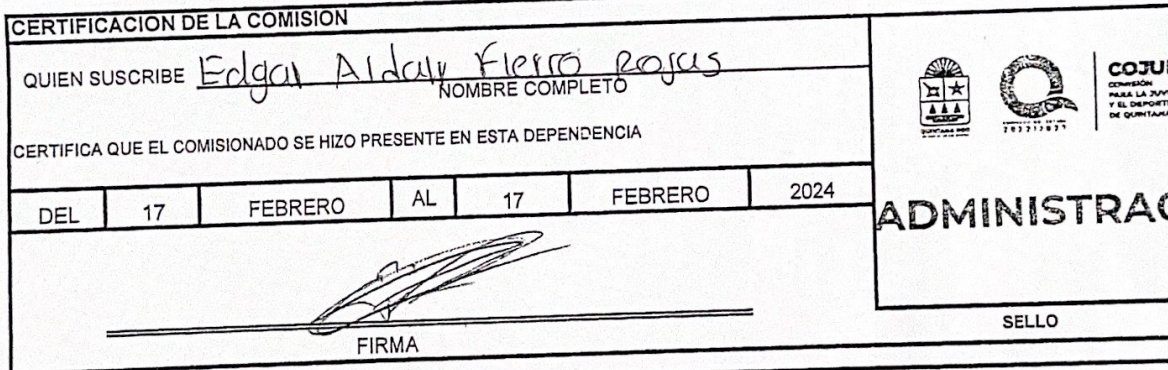 CERTIFICACION DE LA COMISION
QUIEN SUSCRIBE Edgar Aldair Fierro Rojas
NOMBRE COMPLETO
CERTIFICA QUE EL COMISIONADO SE HIZO PRESENTE EN ESTA DEPENDENCIA
DEL 17 FEBRERO AL 17 FEBRERO 2024
FIRMA
QUINTANA ROO
COJU
COMISIÓN
PARA LA JUV
Y EL DEPORTE
DE QUINTANA
ADMINISTRAC
SELLO